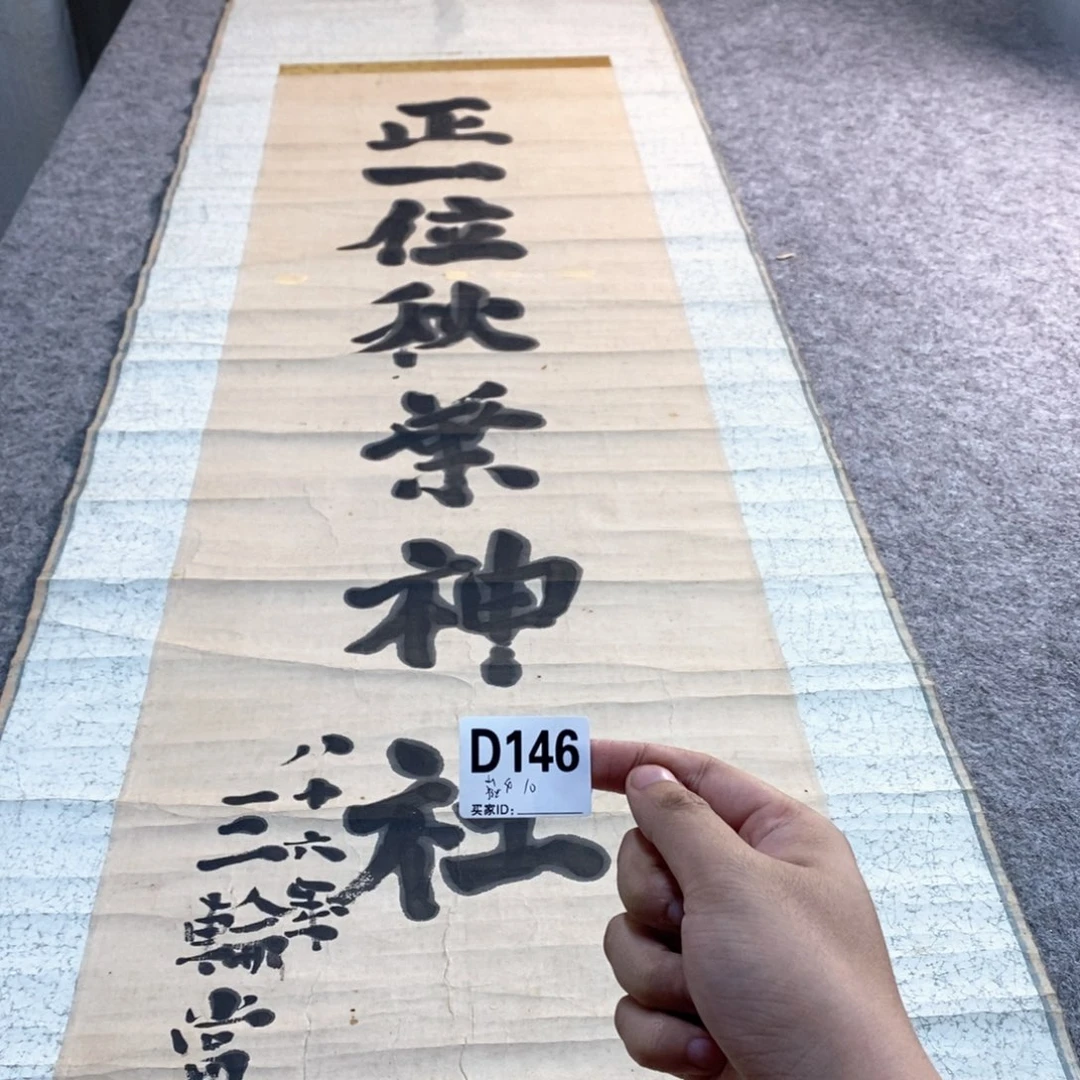 正一位秋葉神社
八十六年
三輪
D146
10
买家ID: